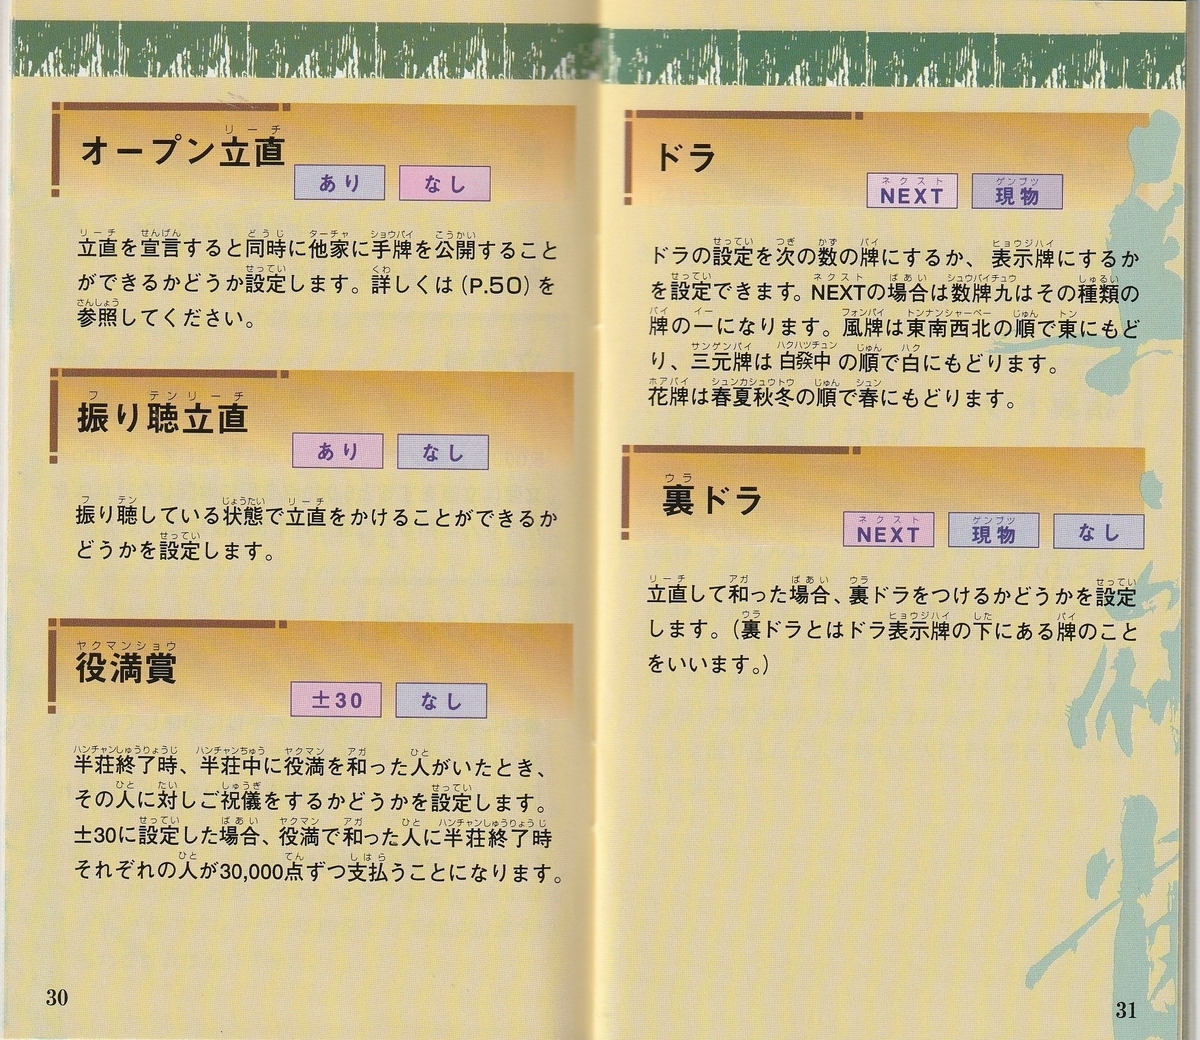 オープン立直
リーチ
あり なし
立直を宣言すると同時に他家に手牌を公開すること
ができるかどうか設定します。詳しくは(P.50)を
参照してください。
振り聴立直
フ テンリーチ
あり なし
振り聴している状態で立直をかけることができるか
どうかを設定します。
役満賞
ヤクマンショウ
±30 なし
半荘終了時、半荘中に役満を和った人がいたとき、
その人に対しご祝儀をするかどうかを設定します。
±30に設定した場合、役満で和った人に半荘終了時
それぞれの人が30,000点ずつ支払うことになります。
30
ドラ
ネクスト ゲンブツ
NEXT 現物
ドラの設定を次の数の牌にするか、表示牌にするか
を設定できます。NEXTの場合は数牌九はその種類の
牌の一になります。風牌は東南西北の順で東にもど
り、三元牌は白發中の順で白にもどります。
花牌は春夏秋冬の順で春にもどります。
裏ドラ
ウラ
ネクスト ゲンブツ
NEXT 現物 なし
立直して和った場合、裏ドラをつけるかどうかを設定
します。(裏ドラとはドラ表示牌の下にある牌のこと
をいいます。)
31